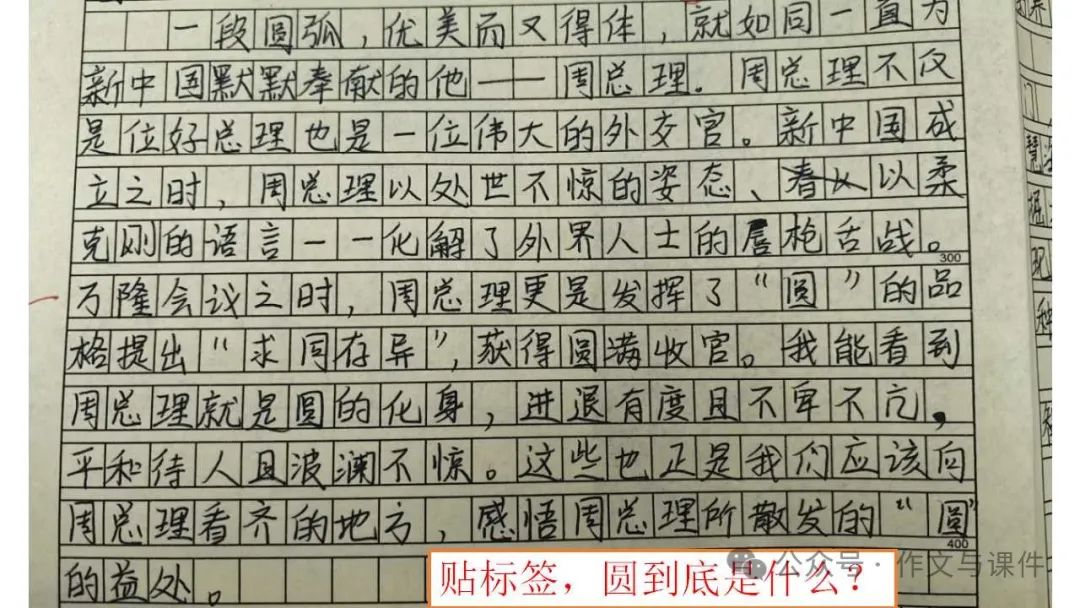 一段圆弧，优美而又得体，就如同一直为
新中国默默奉献的他——周总理．周总理不仅
是位好总理也是一位伟大的外交官。新中国成
立之时，周总理以处世不惊的姿态、以柔
克刚的语言一一化解了外界人士的唇枪舌战。
300
万隆会议之时，周总理更是发挥了“圆”的品
格提出“求同存异”，获得圆满收官。我能看到
周总理就是圆的化身，进退有度且不卑不亢，
平和待人且波澜不惊。这些也正是我们应该向
周总理看齐的地方，感悟周总理所散发的“圆”
400
的益处。
贴标签，圆到底是什么？
公众号·作文与课件